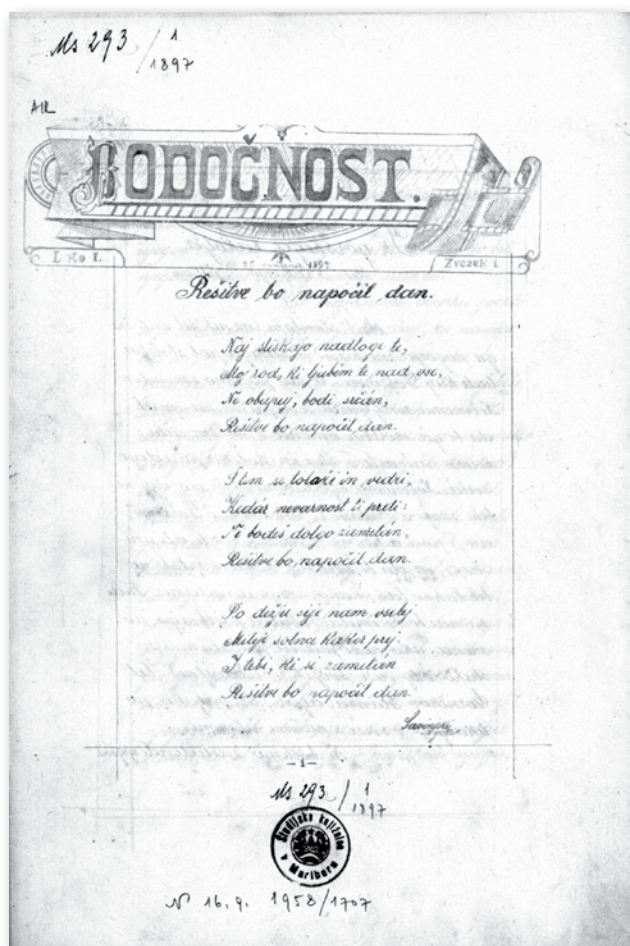 Ms 293/1
1897
BODOČNOST.
Leto I.
1897
Zvezek 1.
Rešitve bo napočil dan.
Naj stiskajo nadloge te,
Moj rod, ki ljubim te nad vse,
Ne obupuj, bodi srčán,
Rešitve bo napočil dan.
S tem se tolaži in vedri,
Kedár nevarnost ti preti:
Ne bodeš dolgo zametán,
Rešitve bo napočil dan.
Po dežju sije nam vselej
Mileje solnce kakor prej.
I tebi, ki si zametán
Rešitve bo napočil dan.
-1-
Ms 293/1
1897
Študijska knjižnica
v Mariboru
N 16. 9. 1958/1707